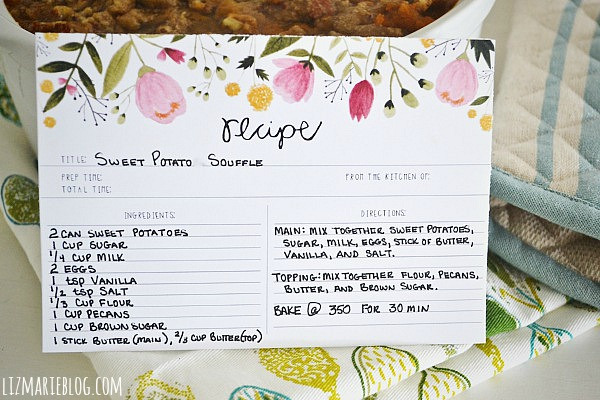 recipe
TITLE: SWEET POTATO SOUFFLE
PREP TIME: FROM THE KITCHEN OF:
TOTAL TIME:
INGREDIENTS:
2 CAN SWEET POTATOES
1 CUP SUGAR
1/4 CUP MILK
2 EGGS
1 tsp VANILLA
1/2 tsp SALT
1/3 CUP FLOUR
1 CUP PECANS
1 CUP BROWN SUGAR
1 STICK BUTTER (MAIN), 2/3 CUP BUTTER (TOP)
DIRECTIONS:
MAIN: MIX TOGETHER SWEET POTATOES,
SUGAR, MILK, EGGS, STICK OF BUTTER,
VANILLA, AND SALT.
TOPPING: MIX TOGETHER FLOUR, PECANS,
BUTTER, AND BROWN SUGAR.
BAKE @ 350 FOR 30 MIN
LIZMARIEBLOG.COM